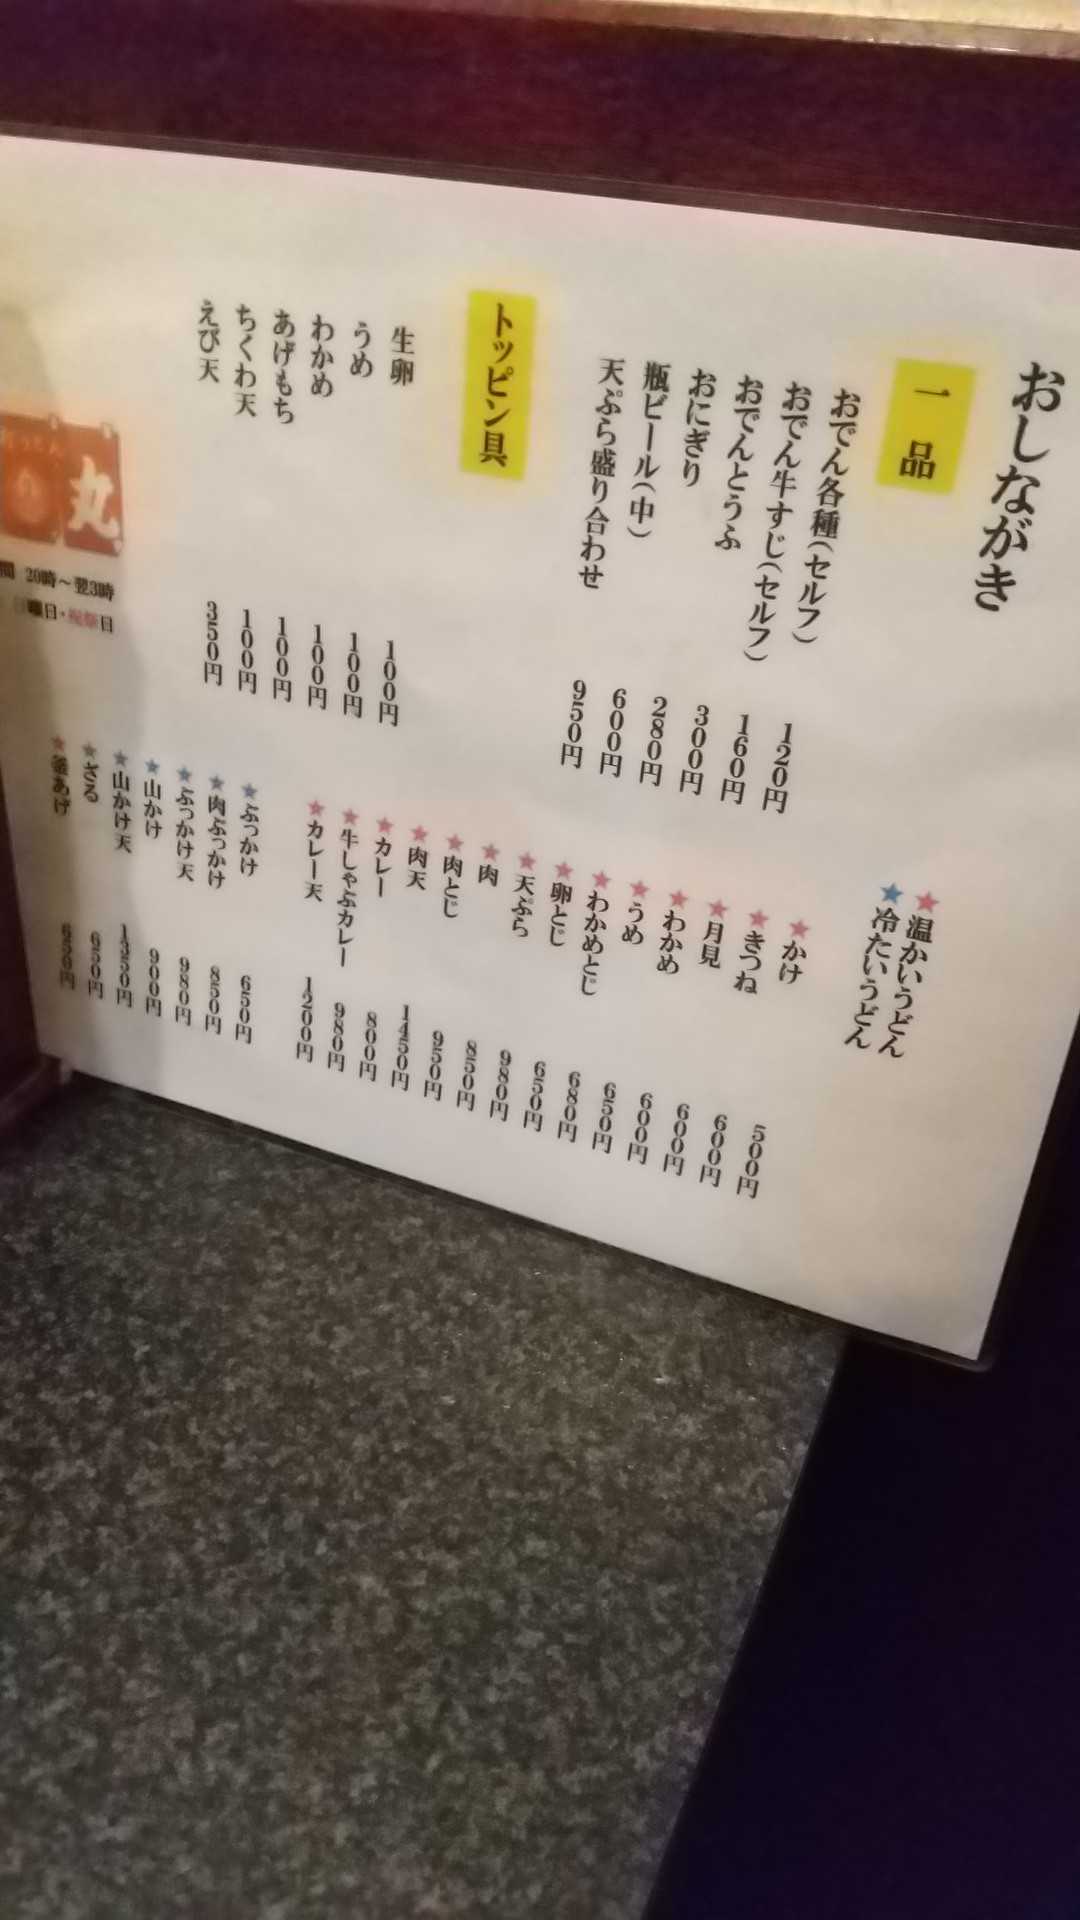 おしながき
一品
おでん各種(セルフ) 120円
おでん牛すじ(セルフ) 160円
おでんとうふ 300円
おにぎり 280円
瓶ビール(中) 600円
天ぷら盛り合わせ 950円
トッピン具
生卵 100円
うめ 100円
わかめ 100円
あげもち 100円
ちくわ天 100円
えび天 350円
★温かいうどん
★冷たいうどん
★かけ 500円
★きつね 600円
★月見 600円
★わかめ 600円
★うめ 650円
★わかめとじ 680円
★卵とじ 650円
★天ぷら 980円
★肉 850円
★肉とじ 950円
★肉天 1450円
★カレー 800円
★牛しゃぶカレー 980円
★カレー天 1200円
★ぶっかけ 650円
★肉ぶっかけ 850円
★ぶっかけ天 980円
★山かけ 900円
★山かけ天 1350円
★ざる 650円
★釜あげ 650円
丸
間 20時～翌3時
曜日・祝祭日